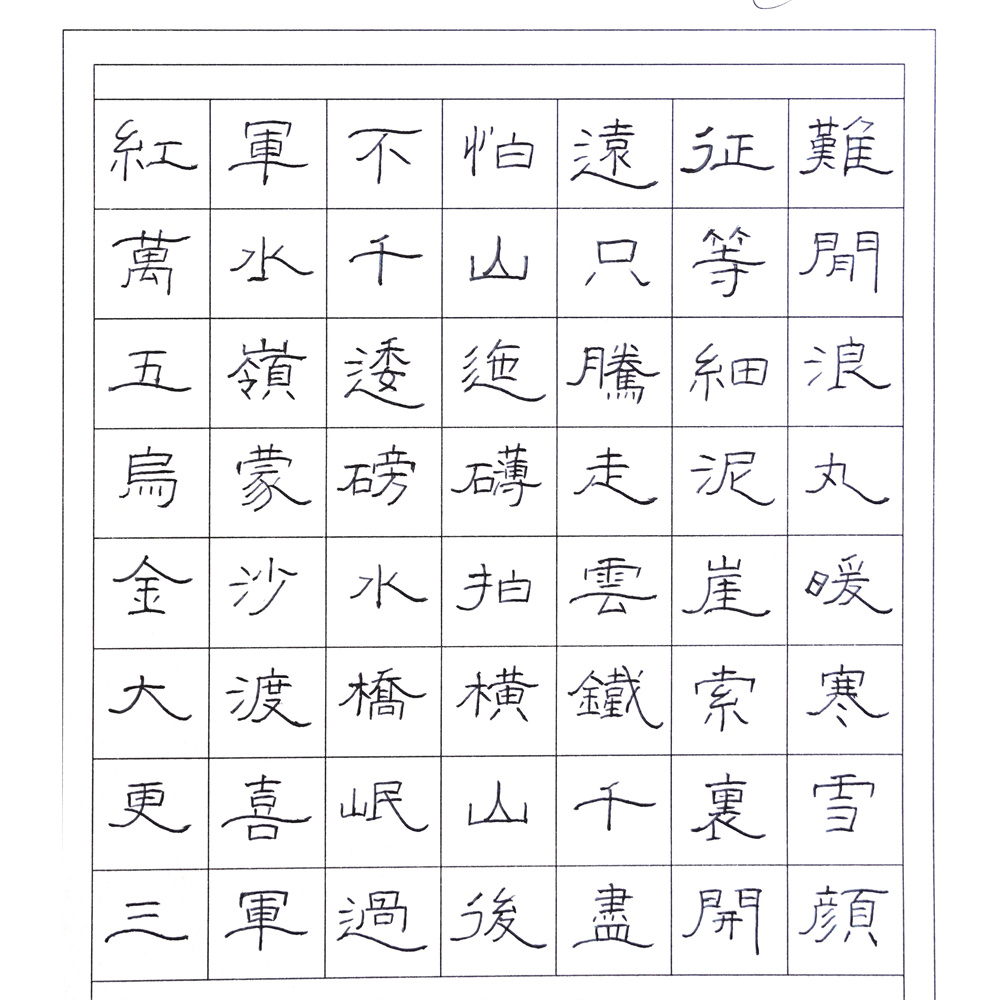 紅軍不怕遠征難
萬水千山只等閒
五嶺逶迤騰細浪
烏蒙磅礴走泥丸
金沙水拍雲崖暖
大渡橋橫鐵索寒
更喜岷山千裏雪
三軍過後盡開顔